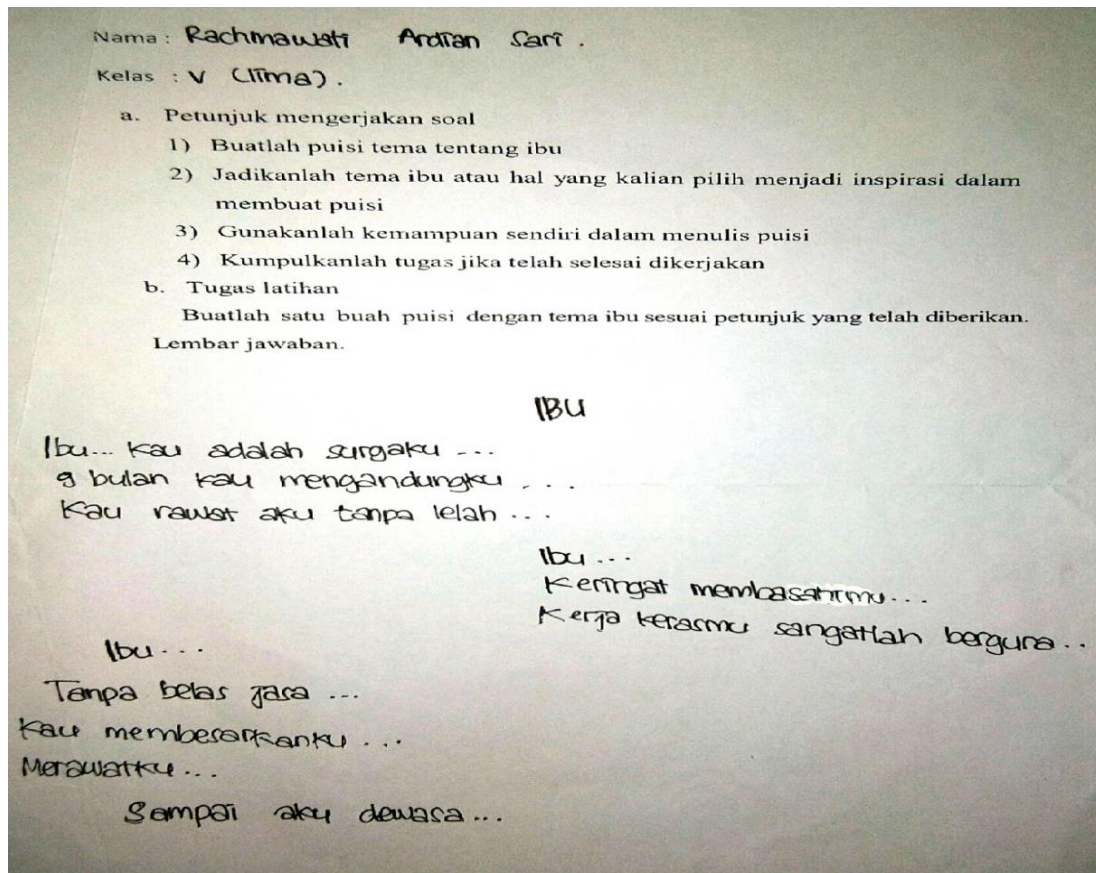 Nama : Rachmawati Ardian Sari .
Kelas : V (lima) .
a. Petunjuk mengerjakan soal
1) Buatlah puisi tema tentang ibu
2) Jadikanlah tema ibu atau hal yang kalian pilih menjadi inspirasi dalam
membuat puisi
3) Gunakanlah kemampuan sendiri dalam menulis puisi
4) Kumpulkanlah tugas jika telah selesai dikerjakan
b. Tugas latihan
Buatlah satu buah puisi dengan tema ibu sesuai petunjuk yang telah diberikan.
Lembar jawaban.
IBU
Ibu... Kau adalah surgaku ...
9 bulan kau mengandungku ...
Kau rawat aku tanpa lelah ...
Ibu ...
Keringat membasahimu...
Kerja kerasmu sangatlah berguna..
Ibu...
Tanpa belas jasa ...
Kau membesarkanku ...
Merawatku...
Sampai aku dewasa...